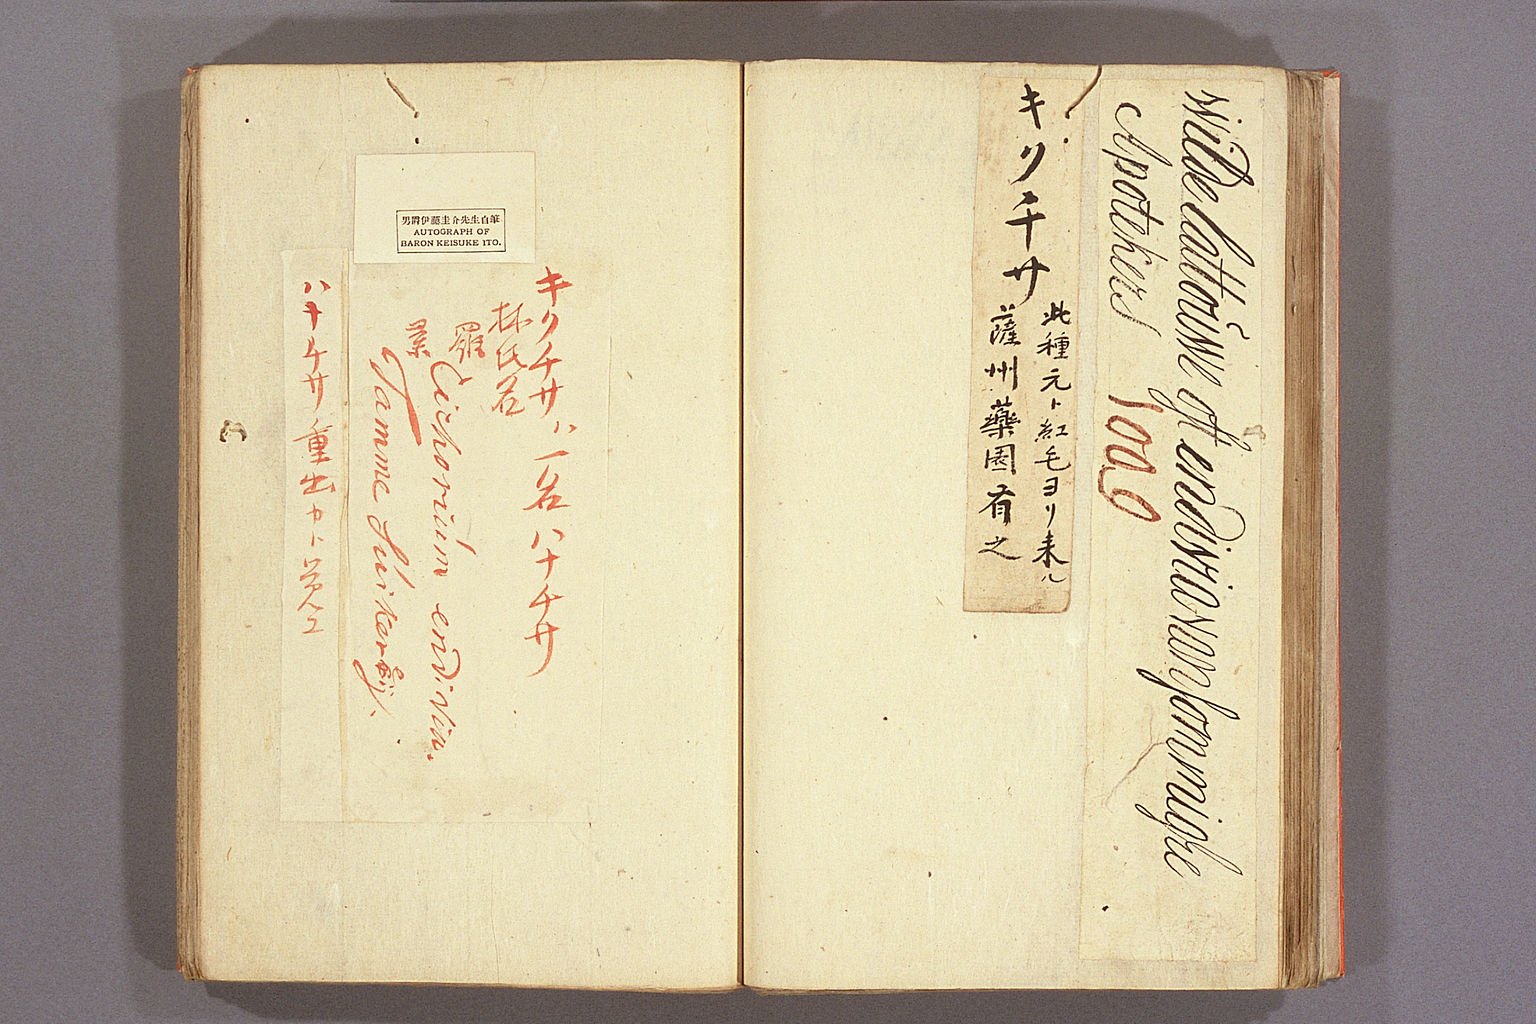 wilde lattouwe of endivio van sommighe
Apothekers
キクチサ
此種元ト紅毛ヨリ来ル
薩州薬園有之
男爵伊藤圭介先生自筆
AUTOGRAPH OF
BARON KEISUKE ITO.
キクチサハ一名ハナチサ
林氏名
羅 Cichorium endivia.
Tamme Suikereÿ.
ハナチサ重出カト